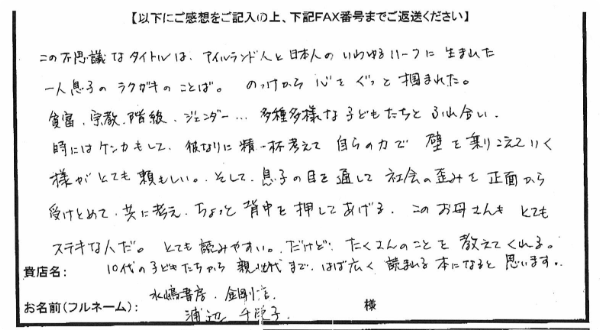 【以下にご感想をご記入の上、下記FAX番号までご返送ください】
この不思議なタイトルは、アイルランド人と日本人のいわゆるハーフに生まれた
一人息子のラクガキのことば。のっけから心をぐっと掴まれた。
貧富、宗教、階級、ジェンダー…多種多様な子どもたちとふれ合い、
時にはケンカもして、彼なりに精一杯考えて自らの力で壁を乗りこえていく
様がとても頼もしい。そして、息子の目を通して社会の歪みを正面から
受けとめて、共に考え、ちょっと背中を押してあげる、このお母さんもとても
ステキな人だ。とても読みやすい。だけど、たくさんのことを教えてくれる。
貴店名: 10代の子どもたちから親世代まで、はば広く読まれる本になると思います。
水嶋書房 金剛店
お名前(フルネーム): 浦辺 千鶴子 様